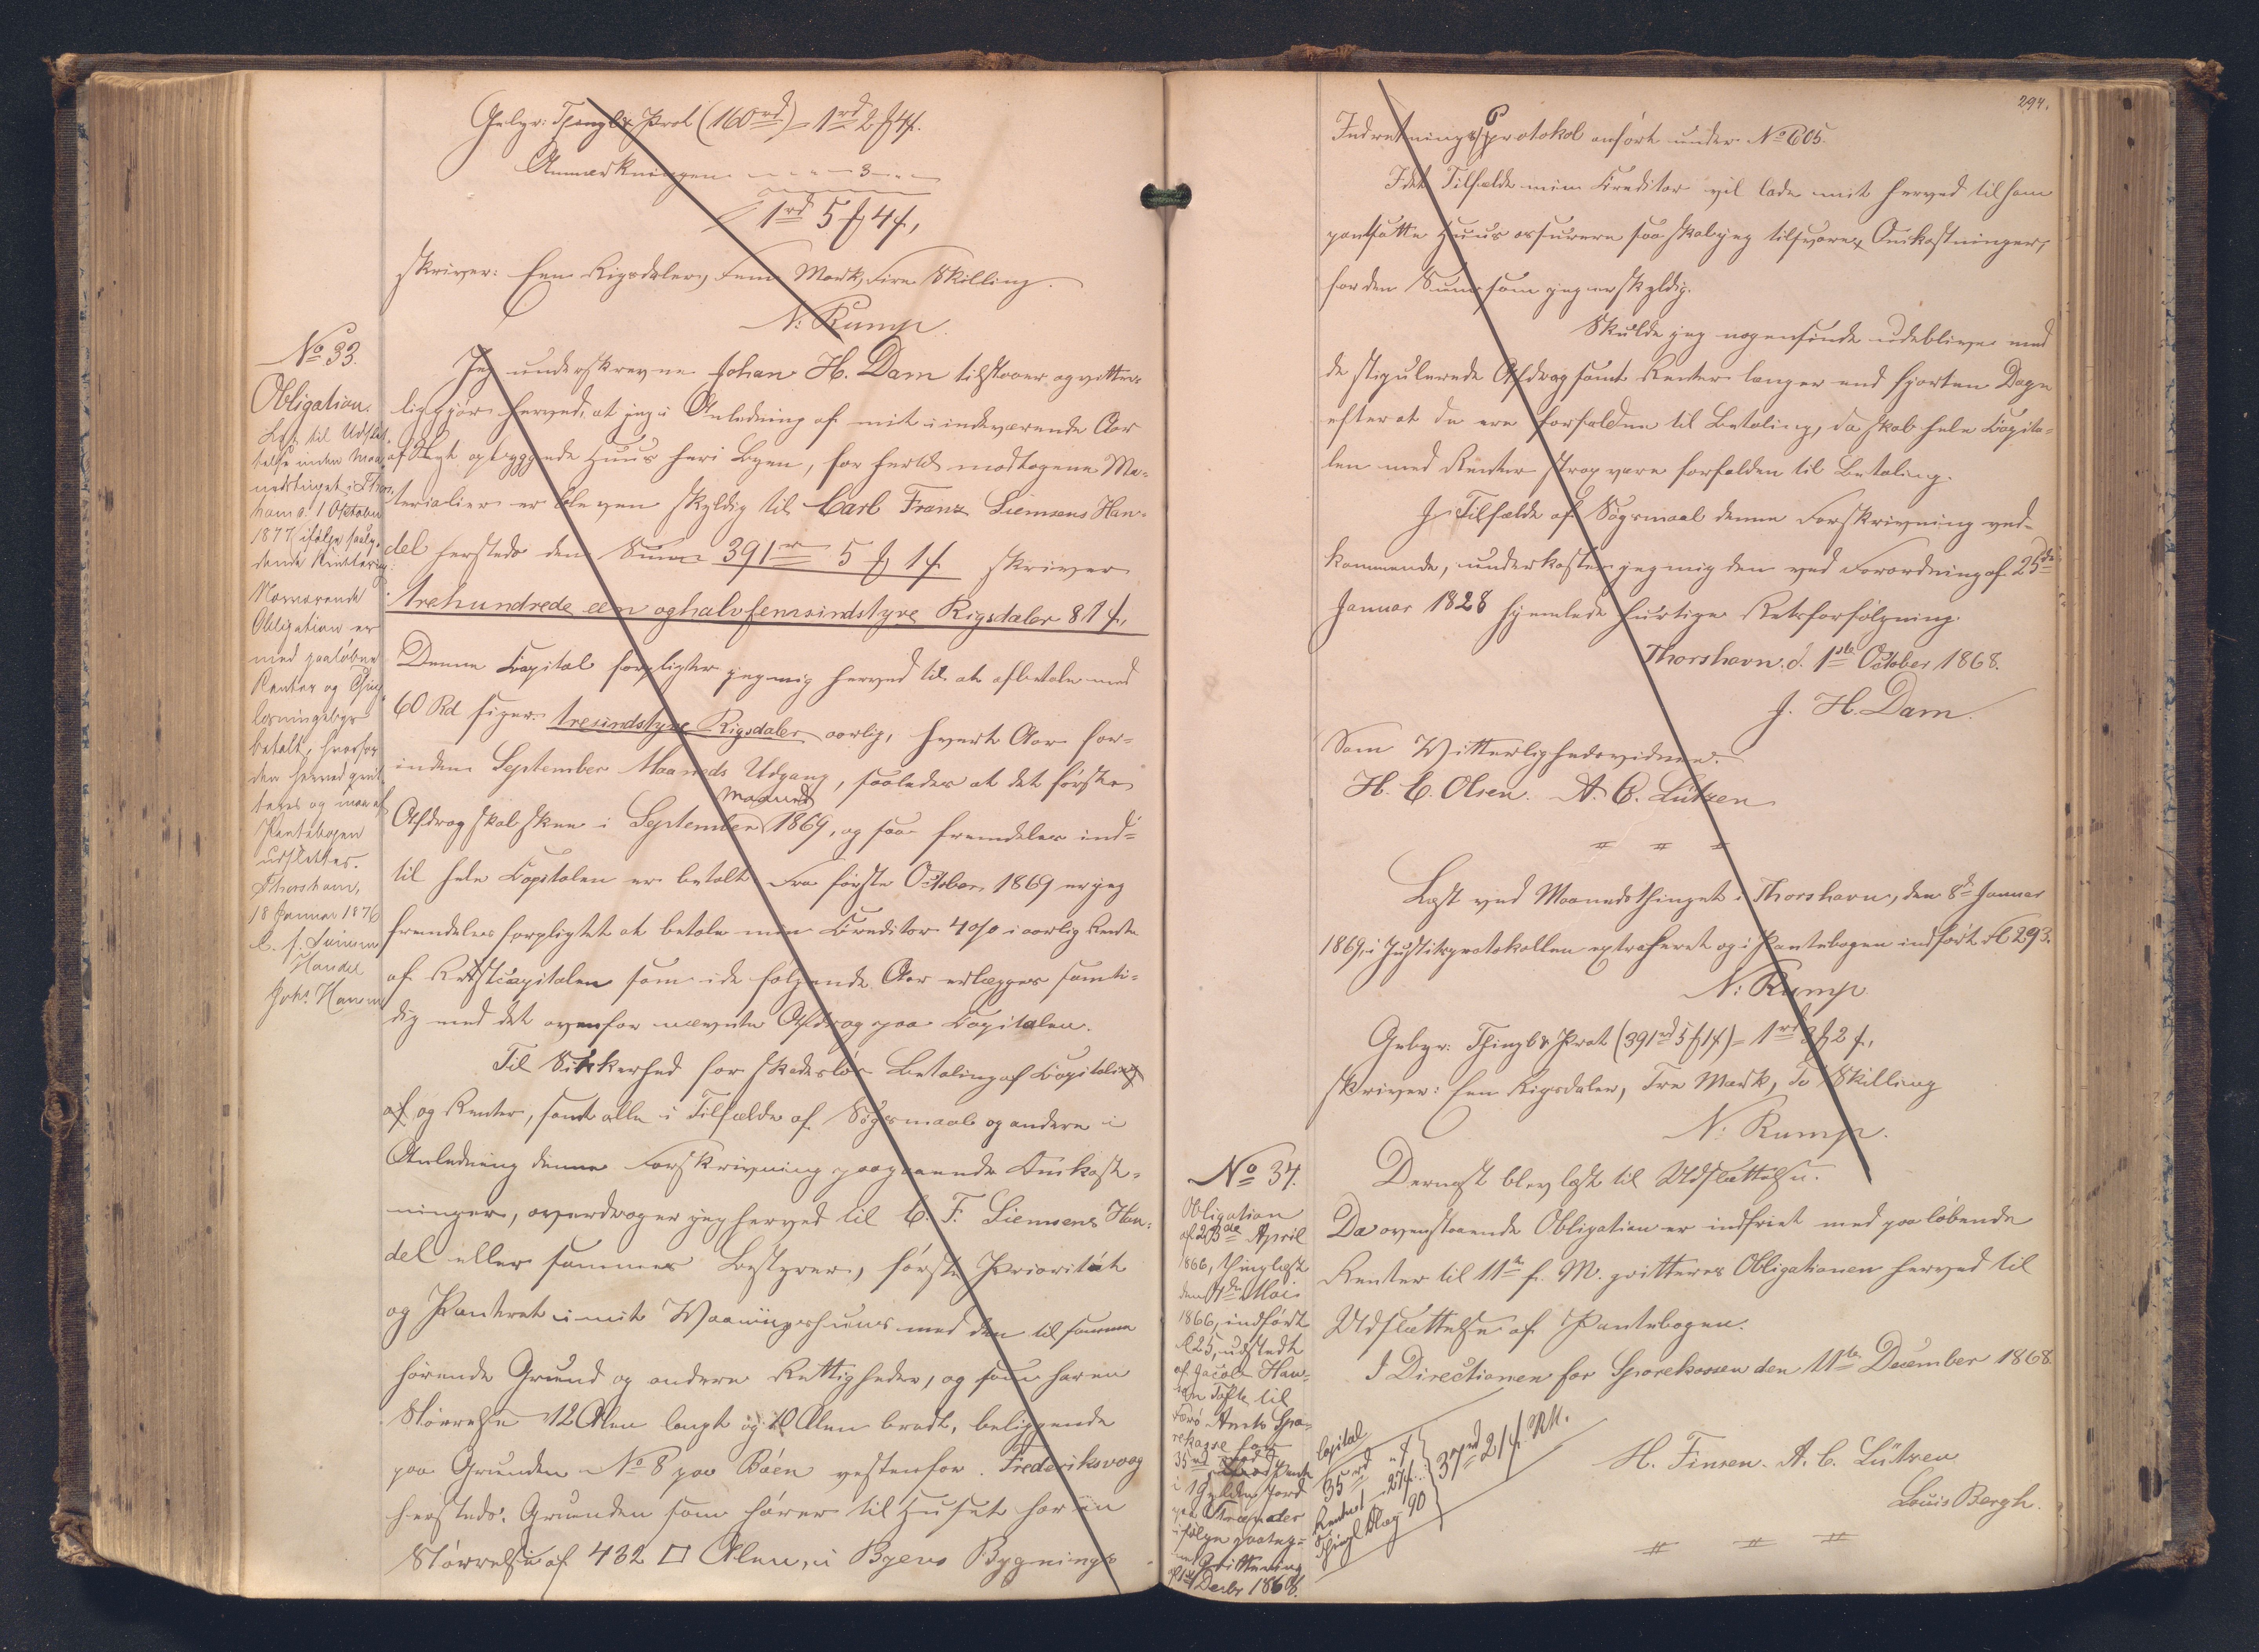 Gebyr: Thinglæs Prot (160rd) = 1rd 2 ƶ 4 ꝭ.
Anmærkningen - - - " - 3 - " -
1rd 5 ƶ 4 ꝭ,
skriver: Een Rigsdaler, Fem Mark, Fire Skilling.
N: Rump
No 33.
Obligation.
Læst til Udslet-
telse inden Maa-
nedstinget i Thors-
havn d. 1 Oktober
1877 ifølge saaly-
dende Kvittering:
Nærværende
Obligation er
med paaløbne
Renter og Thing-
læsningsgebyr
betalt, hvorfor
den herved qvit-
teres og maa af
Pantebogen
udslettes.
Thorshavn,
18 Januar 1876
C. F. Siemsens
Handel
Johs Hansen
Jeg underskrevne Johan H. Dam tilstaaer og vitter-
liggjør herved, at jeg i Anledning af mit i indeværende Aar
af Nyt opbyggede Huus heri Byen, for hertil modtagene Ma-
terialier er bleven skyldig til Carl Franz Siemsens Han-
del hersteds den Summa 391rd 5 ƶ 1 ꝭ skriver
trehundrede een og halvfemsindstyve Rigsdaler 81 ꝭ,
Denne Capital forpligter jeg mig herved til at afbetale med
60 Rd siger: tresindstyve Rigsdaler aarlig, hvert Aar for-
inden September Maaneds Udgang, saaledes at det første
Afdrag skal skee i September Maaned 1869, og saa fremdeles ind-
til hele Capitalen er betalt. Fra første October 1869 er jeg
fremdeles forpligtet at betale min Creditor 4 o/o i aarlig Rente
af Restcapitalen som i de følgende Aar erlægges samti-
dig med det ovenfor nævnte Afdrag paa Capitalen.
Til Sikkerhed for skadesløs Betaling af Capitalen
af og Renter, samt alle i Tilfælde af Søgsmaal og andere i
Anledning denne Forskrivning paagaaende Omkost-
ninger, overdrager jeg herved til C. F. Siemsens Han-
del eller sammes Bestyrer, første Prioritet
og Panteret i mit Vaaningshuus med den til samme
hørende Grund og andere Rettigheder, og som har en
Størrelse 12 Alen langt og 10 Alen bredt, beliggende
paa Grunden No 8 paa Bøen vestenfor Frederiksvaag
hersteds. Grunden som hører til Huset har en
Størrelse af 432 □ Alen, i Byens Bygnings
294.
Indretningsprotokol anført under No 605.
I det Tilfælde min Creditor vil lade mit herved til ham
pantsatte Huus assurere saa skal jeg tilsvare Omkostninger,
for den Sum som jeg er skyldig.
Skulde jeg nogensinde udeblive med
de stipulerede Afdrag samt Renter længer end fjorten Dage
efter at de ere forfaldne til Betaling, da skal hele Capita-
len med Renter strax være forfalden til Betaling.
I Tilfælde af Søgsmaal denne Forskrivning ved-
kommende, underkaster jeg mig den ved Forordning af 25de
Januar 1828 hjemlede hurtige Retsforfølgning.
Thorshavn d. 1ste October 1868.
J. H. Dam.
Som Vitterlighedsvidner.
H. C. Olsen. A. C. Lützen
Læst ved Maanedsthinget i Thorshavn, den 8d Januar
1869, i Justitsprotokollen extraheret og i Pantebogen indført Fol 293.
N: Rump
Gebyr: Thinglæs Prot (391rd 5 ƶ 1 ꝭ) = 1rd 3 ƶ 2 ꝭ,
skriver: Een Rigsdaler, Tre Mark, To Skilling
N: Rump.
Dernæst blev læst til Udslættelse.
No 34.
Obligation
af 23de April
1866, thinglæst
den 4de Mai
1866, indført
Fol 25, udstedt
af Jacob Han-
sen Tofte til
Færø Amts Spa-
rekasse for
35rd mod
Pant
i 1 Gylden Jord
paa Strømøe
ifølge paateg-
net Qvittering
11te Decbr 1868.
Da ovenstaaende Obligation er indfriet med paaløbende
Renter til 11te f. M. qvitteres Obligationen herved til
Udslættelse af Pantebogen.
I Directionen for Sparekassen den 11te December 1868
H. Finsen. A. C. Lützen
Louis Bergh.
Capital 35rd " ꝭ
Renter 1 " 27 ꝭ
Thingl. Afg. 90
37rd 21 ꝭ RM.